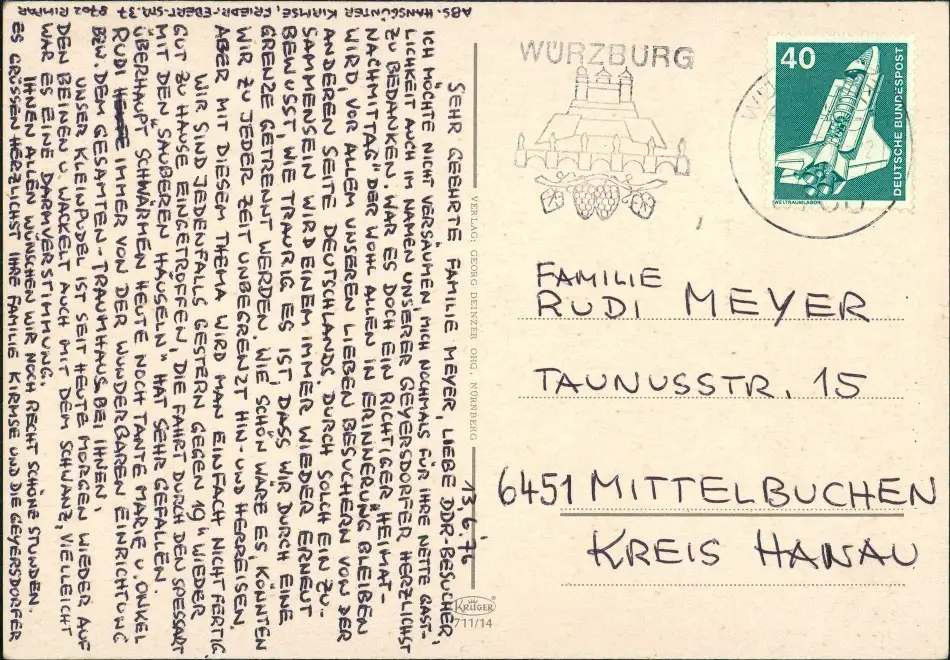 ABS. HANSGÜNTER KIRMSE, FRIEDR.-EBERT-STR. 37 8702 RIMPAR
13.6.'76
SEHR GEEHRTE FAMILIE MEYER, LIEBE DDR-BESUCHER,
ICH MÖCHTE NICHT VERSÄUMEN MICH NOCHMALS FÜR IHRE NETTE GAST-
LICHKEIT AUCH IM NAMEN UNSERER GEYERSDORFER HERZLICHST
ZU BEDANKEN. WAR ES DOCH EIN RICHTIGER „HEIMAT-
NACHMITTAG" DER WOHL ALLEN IN ERINNERUNG BLEIBEN
WIRD, VOR ALLEM UNSEREN LIEBEN BESUCHERN VON DER
ANDEREN SEITE DEUTSCHLANDS. DURCH SOLCH EIN ZU-
SAMMENSEIN WIRD EINEM IMMER WIEDER ERNEUT
BEWUSST WIE TRAURIG ES IST, DASS WIR DURCH EINE
GRENZE GETRENNT WERDEN. WIE SCHÖN WÄRE ES, KÖNNTEN
WIR ZU JEDER ZEIT UNBEGRENZT HIN- UND HERREISEN.
ABER MIT DIESEM THEMA WIRD MAN EINFACH NICHT FERTIG
WIR SIND JEDENFALLS GESTERN GEGEN 19 h WIEDER
GUT ZU HAUSE EINGETROFFEN, DIE FAHRT DURCH DEN SPESSART
MIT DEN „SAUBEREN HÄUSELN" HAT SEHR GEFALLEN.
ÜBERHAUPT SCHWÄRMEN HEUTE NOCH TANTE MARIE U. ONKEL
RUDI IMMER VON DER WUNDERBAREN EINRICHTUNG
BZW. DEM GESAMTEN-TRAUMHAUS BEI IHNEN.
UNSER KLEINPUDEL IST SEIT HEUTE MORGEN WIEDER AUF
DEN BEINEN U. WACKELT AUCH MIT DEM SCHWANZ, VIELLEICHT
WAR ES EINE DARMVERSTIMMUNG.
IHNEN ALLEN WÜNSCHEN WIR NOCH RECHT SCHÖNE STUNDEN.
ES GRÜSSEN HERZLICHST IHRE FAMILIE KIRMSE UND DIE GEYERSDORFER
VERLAG: GEORG DEINZER OHG. NÜRNBERG
KRÜGER
711/14
WÜRZBURG
40
DEUTSCHE BUNDESPOST
WELTRAUMLABOR
FAMILIE
RUDI MEYER
TAUNUSSTR. 15
6451 MITTELBUCHEN
KREIS HANAU